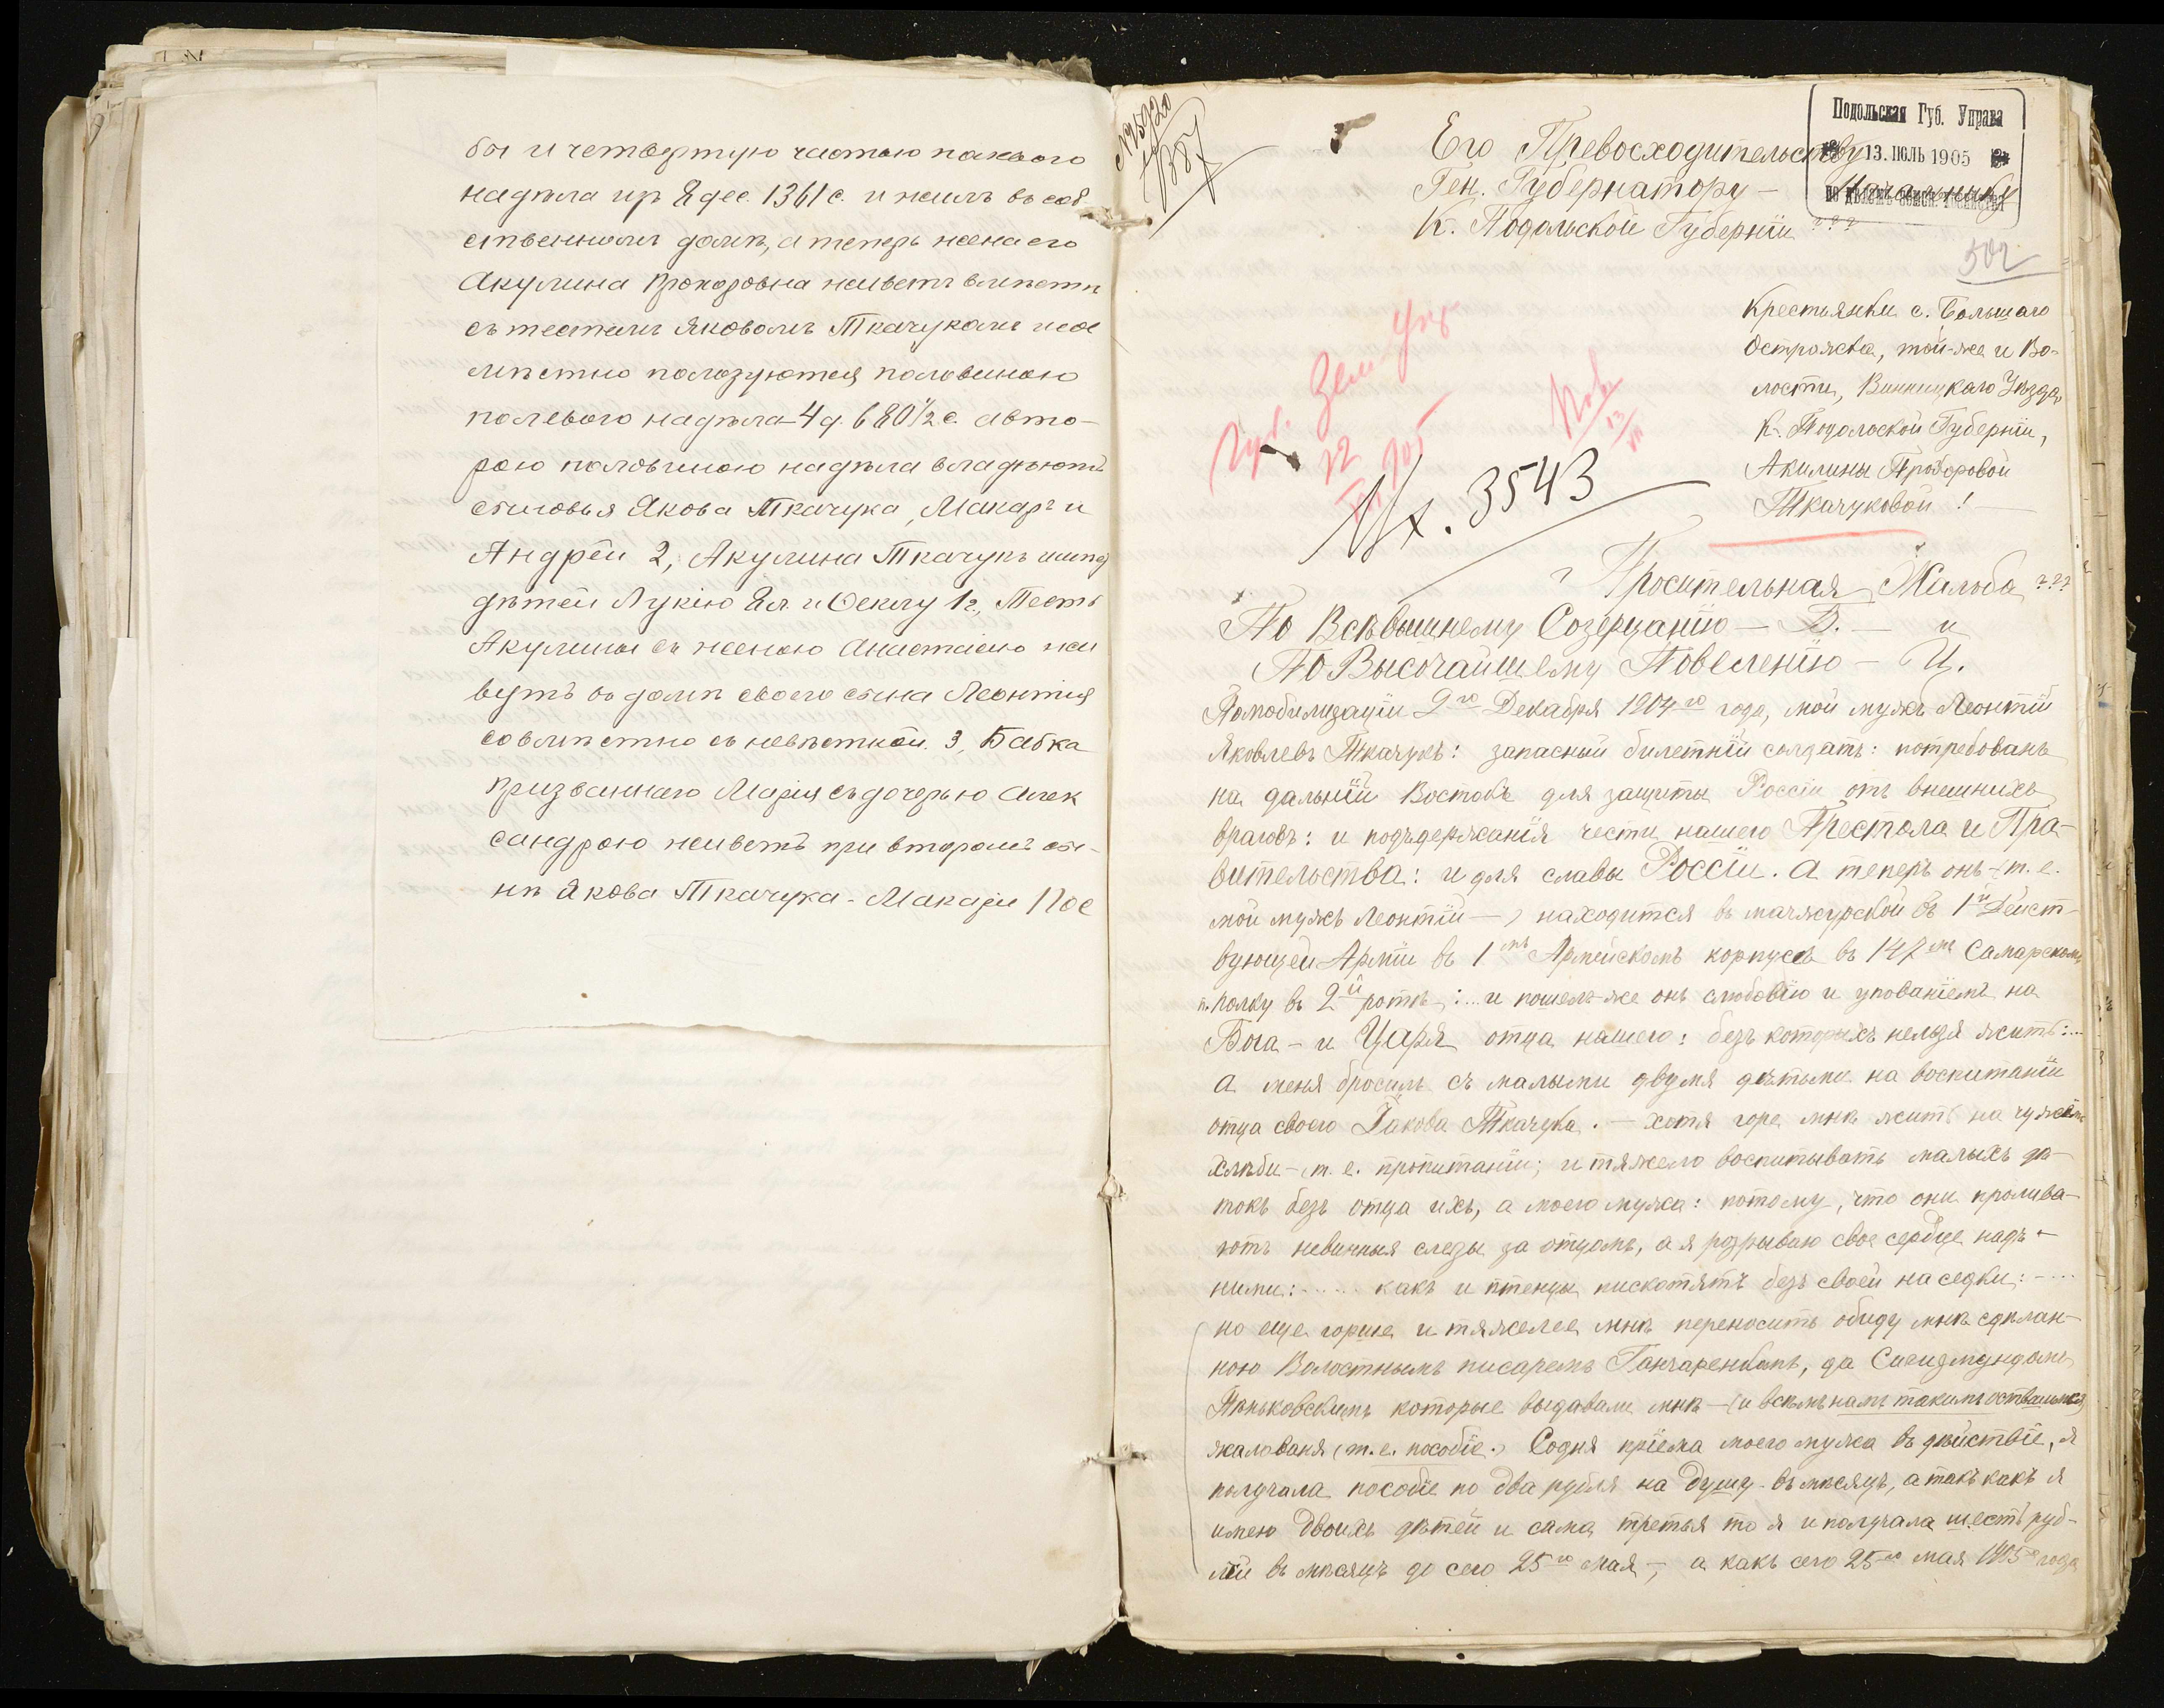 бы и четвертую частью пахаго
надѣла изъ 8 дес. 1361 с. и жилъ въ соб
ственномъ домѣ, а теперь жена его
Акулина Прохоровна живетъ вмѣстѣ
съ тестемъ Яковомъ Ткачукомъ и со
мѣстно пользуются половиною
полевого надѣла 4 д. 680½ с. а вто-
рою половиною надѣла владѣютъ
сыновья Якова Ткачука, Макаръ и
Андрей 2, Акулина Ткачукъ имѣе
дѣтей Лукію 8 л. и Ѳеклу 1 г., Тесть
Акулины съ женою Анастасіею жи
вутъ въ домѣ своего сына Леонтія
совмѣстно съ невѣсткой. 3, Бабка
призваннаго Марія съ дочерью Алек
сандрою живетъ при второмъ сы-
нѣ Якова Ткачука - Макаріи
Подольская Губ. Управа
13. ІЮЛЬ 1905
Его Превосходительству
Ген. Губернатору — Начальнику
К. Подольской Губерніи
502
Крестьянки с. Большаго
Остружка, той-же и Во-
лости, Винницкаго Уѣзда,
К. Подольской Губерніи,
Акилины Прохоровой
Ткачуковой!
Губ. Зем. Упр
22
905
13
Вх. 3543
Просительная Жалоба ???
По Всѣвышнему Созерцанію — Б. — и
По Высочайшему Повеленію — Ц.
По мобилизаціи 2го Декабря 1904го года, мой мужъ Леонтій
Яковлевъ Ткачукъ: запасный билетній солдатъ: потребованъ
на дальній Востокъ для защиты Россіи отъ внешнихъ
враговъ: и подъдержанія чести нашего Престола и Пра-
вительства: и для славы Россіи. А теперь онъ (т. е.
мой мужъ Леонтій —) находится въ манжурской въ 1й Дейст-
вующей Арміи въ 1мъ Армейскомъ корпусѣ въ 147мъ Самарскомъ
п. полку въ 2й ротѣ: ... и пошелъ-же онъ слюбовію и упованіемъ на
Бога - и Царя отца нашего: безъ которыхъ нельзя жить: ...
а меня бросилъ съ малыми двумя дѣтьми на воспитаніи
отца своего Іакова Ткачука. — хотя горе мнѣ жить на чужемъ
хлѣби - т. е. пропитаніи; и тяжело воспитывать малыхъ дѣ-
токъ безъ отца ихъ, а моего мужа: потому, что они пролива-
ютъ невинныя слезы за отцомъ, а я розрываю свое сердце надъ -
ними: ...... какъ и птенцы пискотятъ безъ своей наседки: - ....
но еще горше и тяжелее мнѣ переносить обиду мнѣ сдѣлан-
ною Волостнымъ писаремъ Ганчаренкомъ, да Сигизмундомъ
Паньковскимъ которые выдавали мнѣ — (и всѣмъ намъ такимъ оставшимся)
жалованя (т. е. пособіе.) Содня пріема моего мужа въ дѣйствіе, я
получала пособіе по два рубля на душу въ мѣсяцъ, а такъ какъ я
имею двоихъ дѣтей и сама третья то я и получала шесть руб-
лей въ мѣсяцъ до сего 25го мая —, а какъ сего 25го мая 1905 года